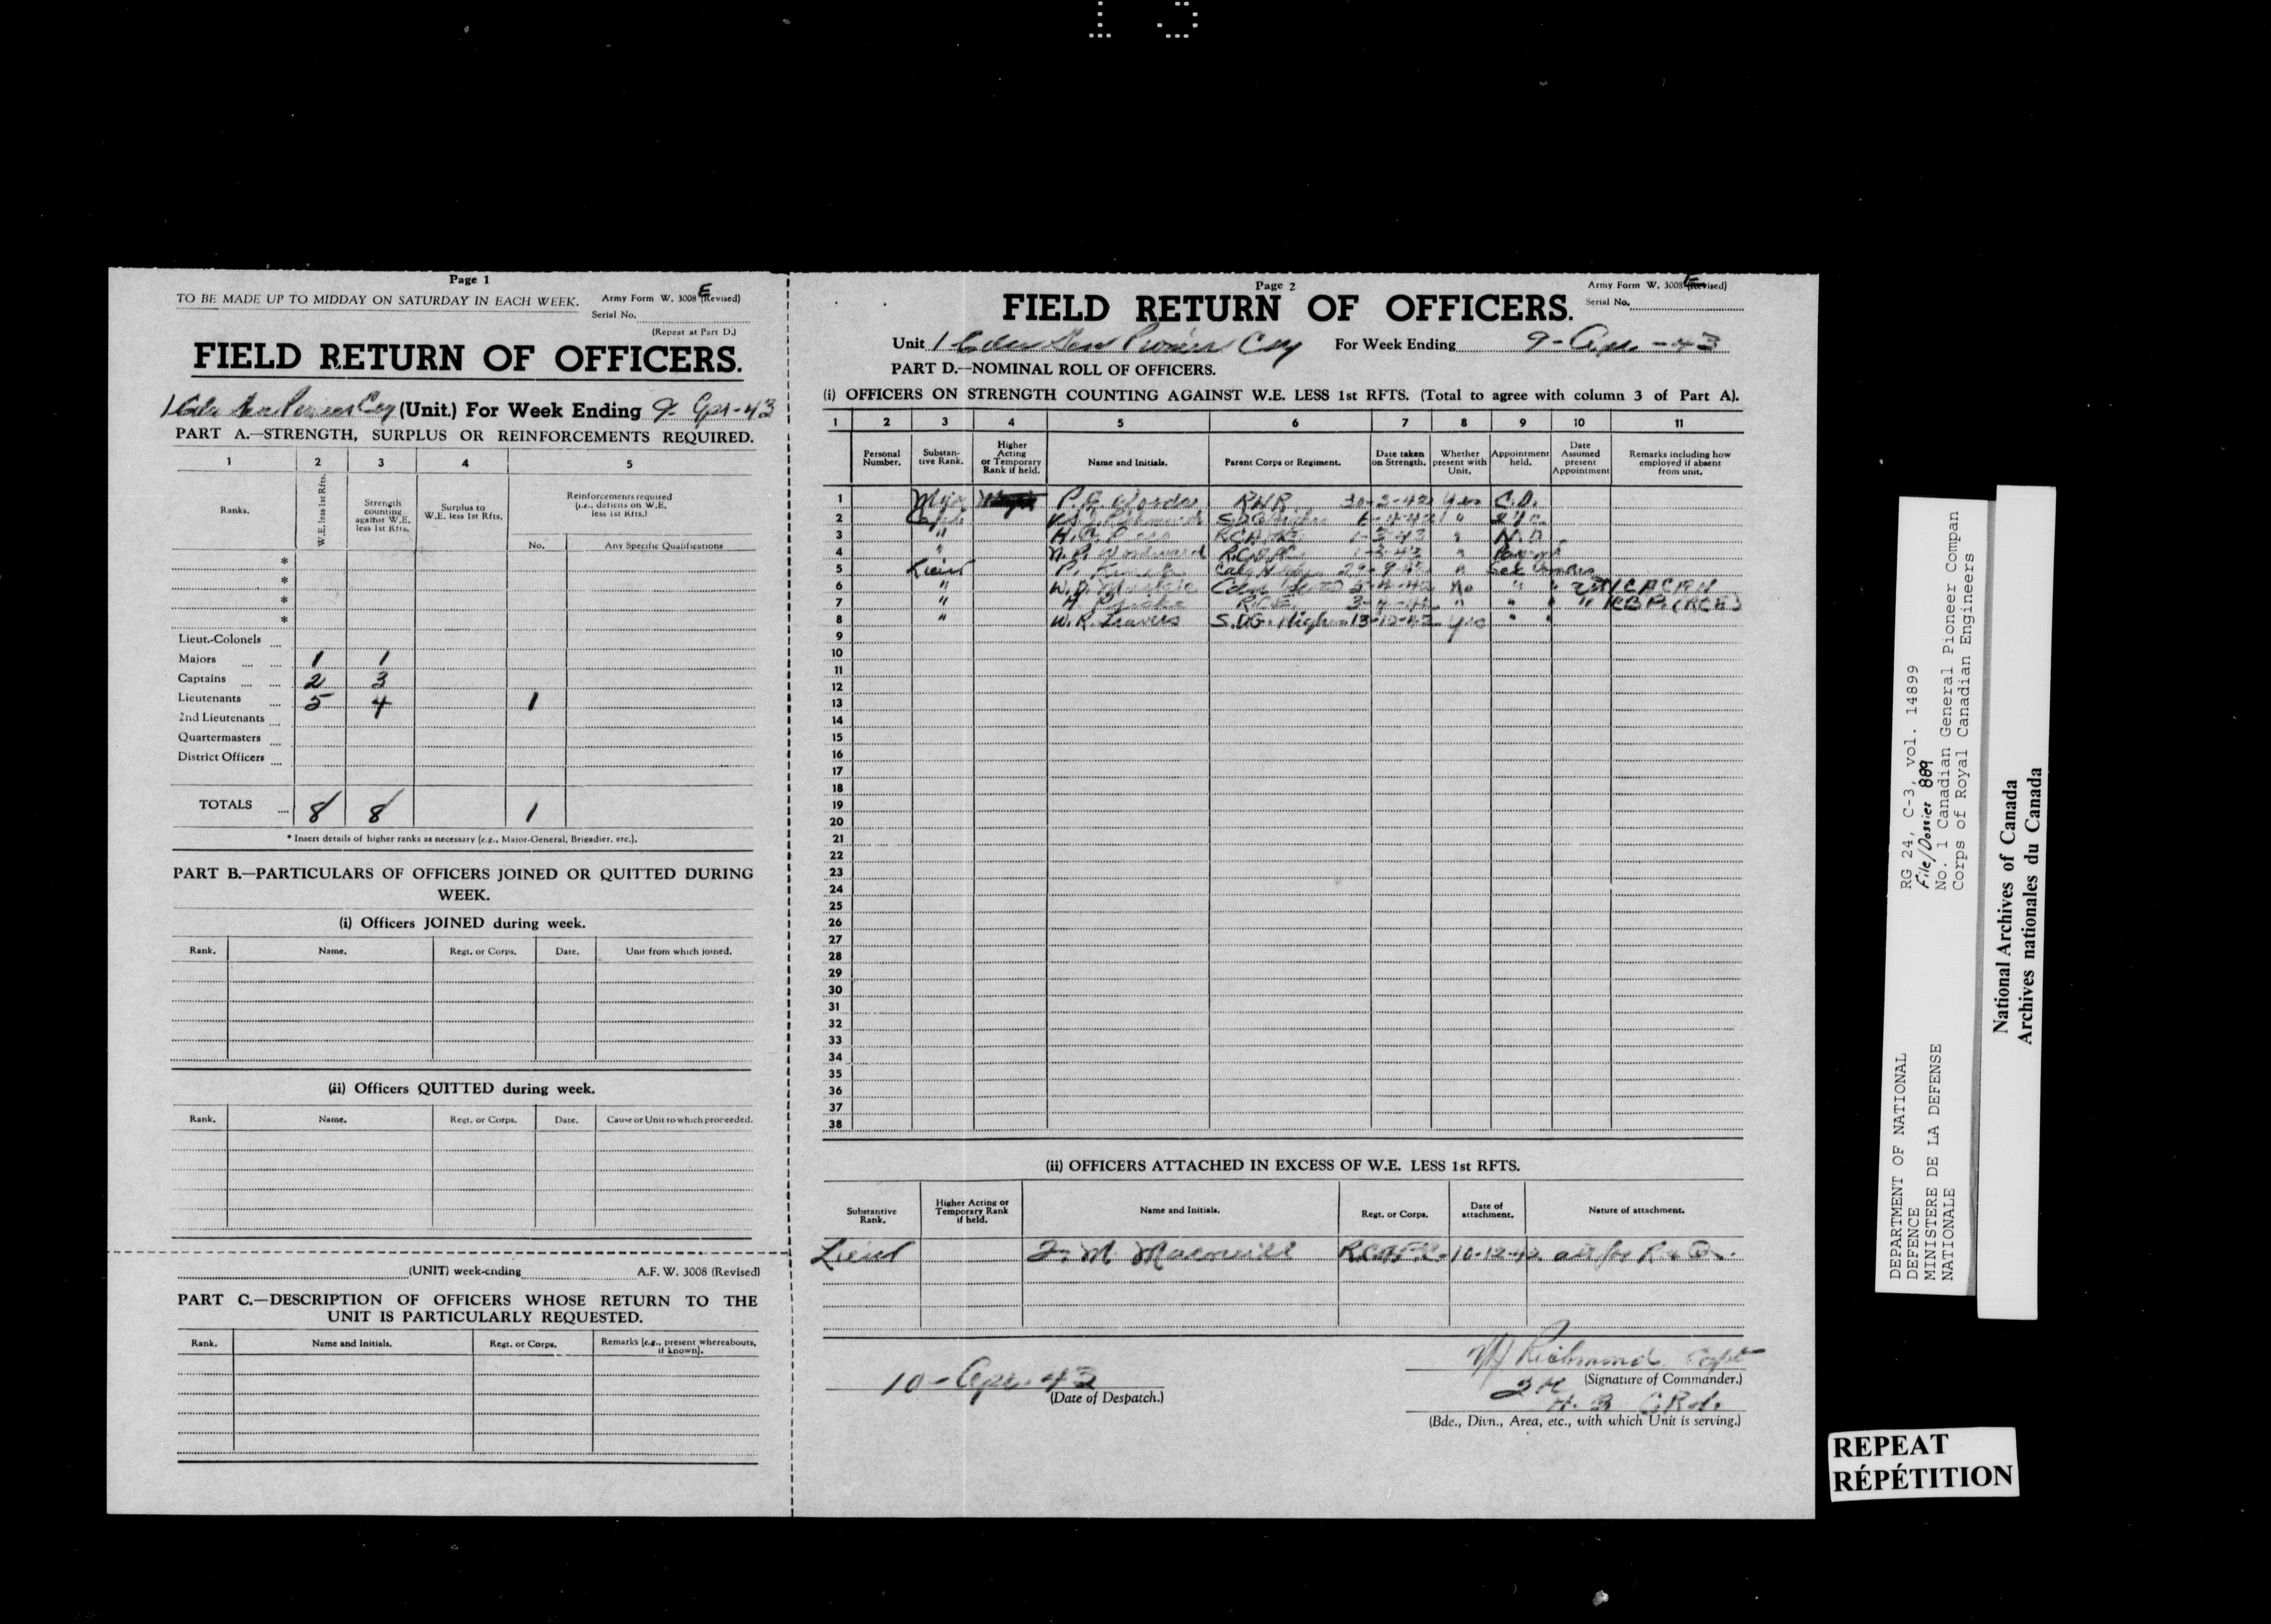 Page 1
TO BE MADE UP TO MIDDAY ON SATURDAY IN EACH WEEK. Army Form W. 3008 E (Revised)
Serial No.
(Repeat at Part D.)
FIELD RETURN OF OFFICERS.
1 Cdn Gen Pioneer Coy (Unit.) For Week Ending 9-Apr-43
PART A.—STRENGTH, SURPLUS OR REINFORCEMENTS REQUIRED.
1 2 3 4 5
Ranks. W.E. less 1st Rfts. Strength counting against W.E. less 1st Rfts. Surplus to W.E. less 1st Rfts. Reinforcements required (i.e., deficits on W.E. less 1st Rfts.)
No. Any Specific Qualifications
*
*
*
*
Lieut.-Colonels
Majors 1 1
Captains 2 3
Lieutenants 5 4 1
2nd Lieutenants
Quartermasters
District Officers
TOTALS 8 8 1
* Insert details of higher ranks as necessary (e.g., Major-General, Brigadier, etc.).
PART B.—PARTICULARS OF OFFICERS JOINED OR QUITTED DURING
WEEK.
(i) Officers JOINED during week.
Rank. Name. Regt. or Corps. Date. Unit from which joined.
(ii) Officers QUITTED during week.
Rank. Name. Regt. or Corps. Date. Cause or Unit to which proceeded.
(UNIT) week-ending A.F. W. 3008 (Revised)
PART C.—DESCRIPTION OF OFFICERS WHOSE RETURN TO THE
UNIT IS PARTICULARLY REQUESTED.
Rank. Name and Initials. Regt. or Corps. Remarks (e.g., present whereabouts, if known).
Page 2
Army Form W. 3008 E (Revised)
FIELD RETURN OF OFFICERS. Serial No.
Unit 1 Cdn Gen Pioneer Coy For Week Ending 9-Apr-43
PART D.—NOMINAL ROLL OF OFFICERS.
(i) OFFICERS ON STRENGTH COUNTING AGAINST W.E. LESS 1st RFTS. (Total to agree with column 3 of Part A).
1 2 3 4 5 6 7 8 9 10 11
Personal Number. Substantive Rank. Higher Acting or Temporary Rank if held. Name and Initials. Parent Corps or Regiment. Date taken on Strength. Whether present with Unit. Appointment held. Date Assumed present Appointment Remarks including how employed if absent from unit.
1 Major RHR Yes
2 Capt "
3 " "
4 " Woodward "
5 Lieut "
6 " No " "
7 " R.C.E. " " " "
8 " W.R. Travers S.D.G. Highrs 13-10-42 Yes " "
9
10
11
12
13
14
15
16
17
18
19
20
21
22
23
24
25
26
27
28
29
30
31
32
33
34
35
36
37
38
(ii) OFFICERS ATTACHED IN EXCESS OF W.E. LESS 1st RFTS.
Substantive Rank. Higher Acting or Temporary Rank if held. Name and Initials. Regt. or Corps. Date of attachment. Nature of attachment.
Lieut M Macneill 10-12-42 att for
10-Apr-43
(Date of Despatch.)
Richmond Capt
(Signature of Commander.)
(Bde., Divn., Area, etc., with which Unit is serving.)
RG 24, C-3, vol. 14899
File/Dossier 889
No. 1 Canadian General Pioneer Compan
Corps of Royal Canadian Engineers
DEPARTMENT OF NATIONAL
DEFENCE
MINISTERE DE LA DEFENSE
NATIONALE
National Archives of Canada
Archives nationales du Canada
REPEAT
RÉPÉTITION